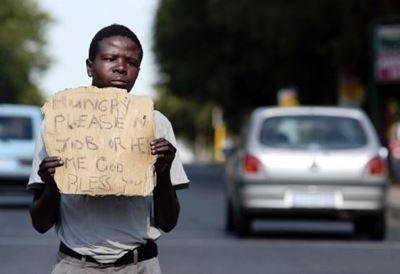 HUNGRY
PLEASE
JOB OR HE
ME GOD
BLESS YOU